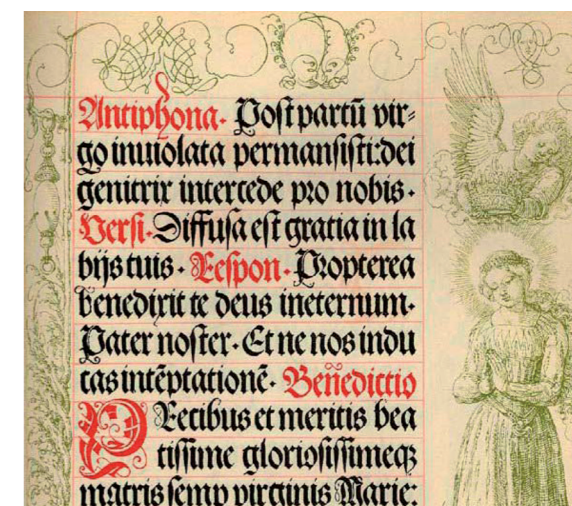 Antiphona. Post partū vir⸗
go inuiolata permansisti: dei
genitrix intercede pro nobis.
Versi. Diffusa est gratia in la
bijs tuis. Respon. Propterea
benedixit te deus ineternum.
Pater noster. Et ne nos indu
cas intēptationē. Benedictio
PRecibus et meritis bea
tissime gloriosissimeqꝫ
matris semp virginis Marie: